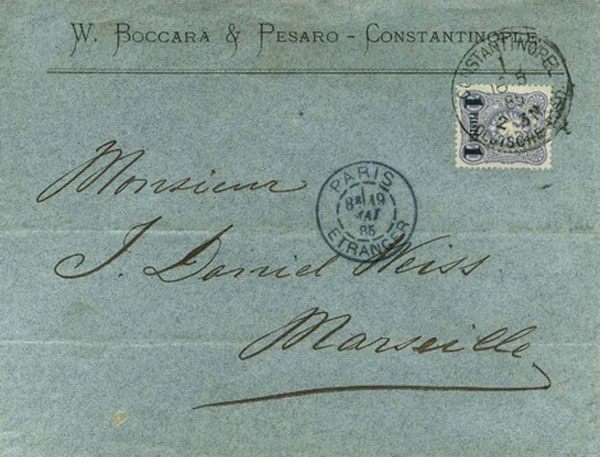 W. BOCCARA & PESARO - CONSTANTINOPLE.
CONSTANTINOPEL
1
16 5
85
2-3N
DEUTSCHE POST
1 PIASTER 1
Monsieur
PARIS
1
19
MAI
85
ETRANGER
J. Daniel Weiss
Marseille